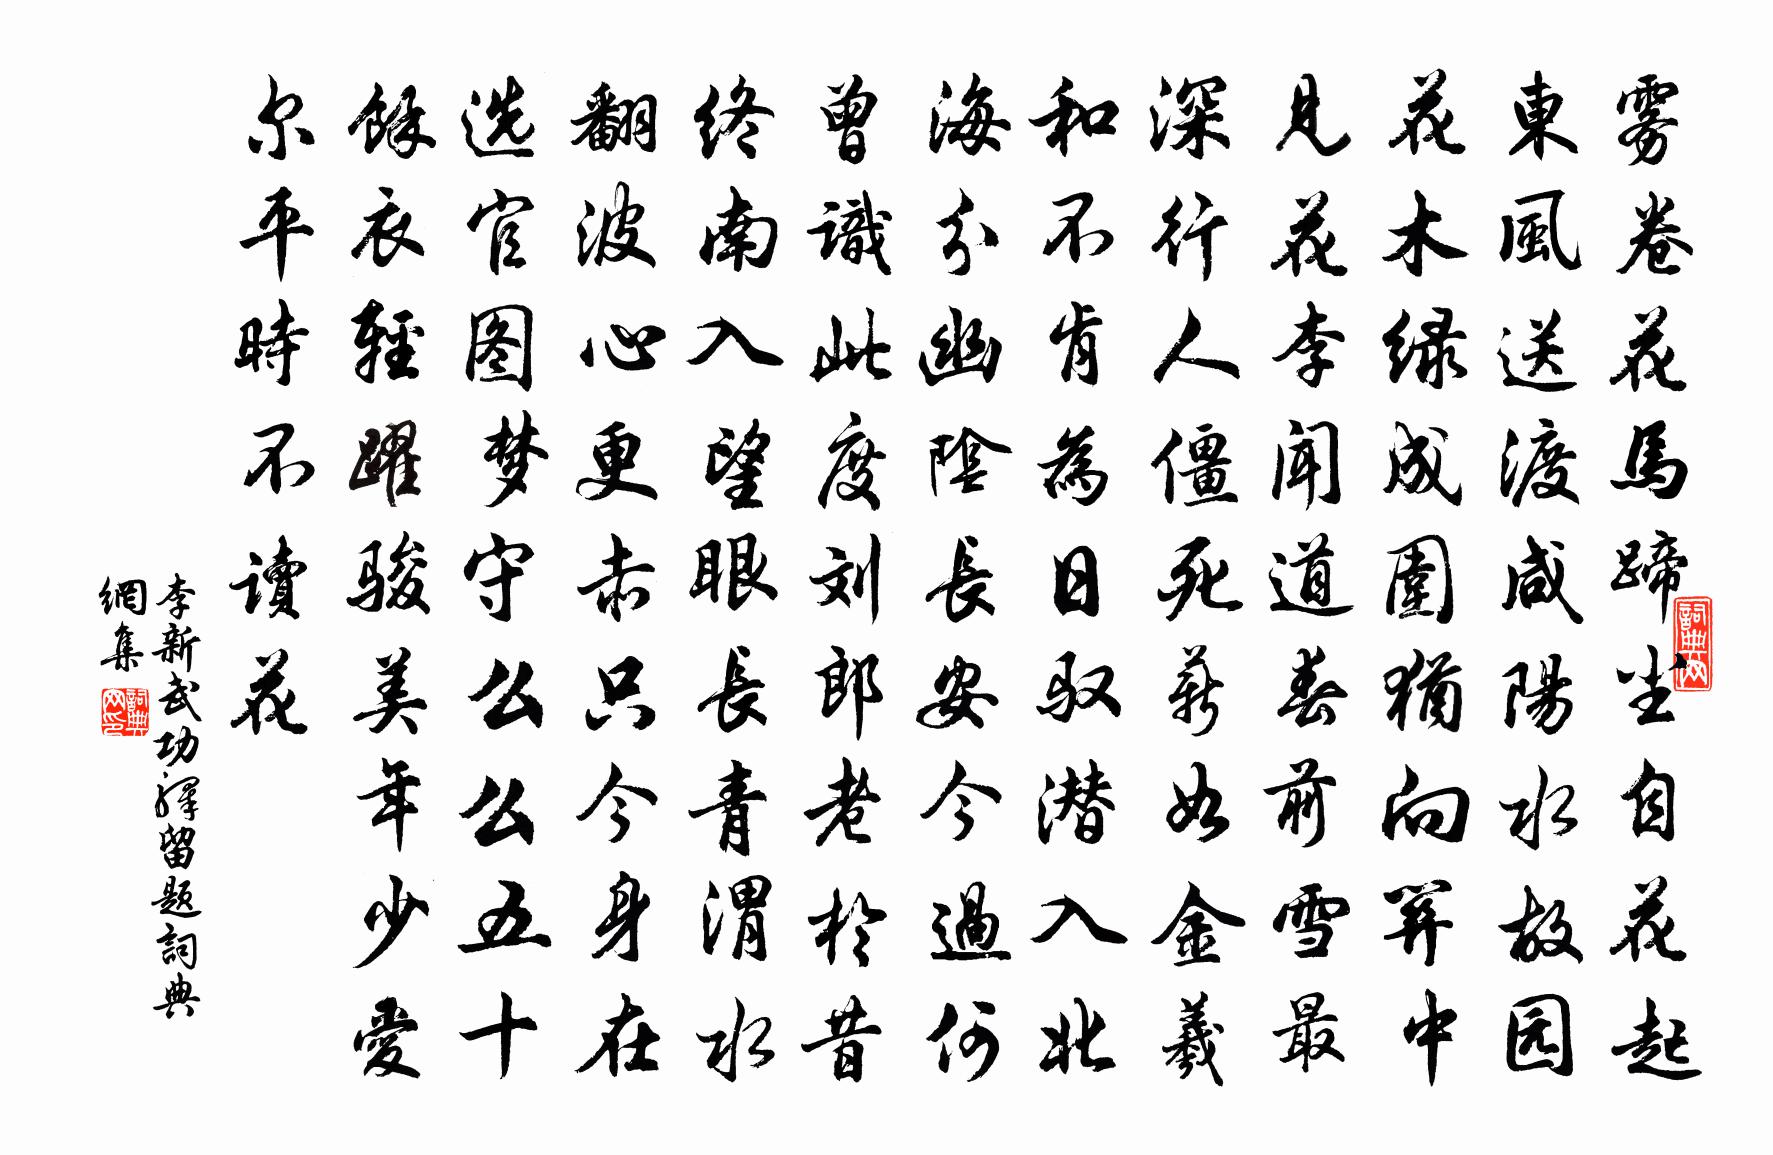 雾卷花馬蹄尘自花起
東風送渡咸陽水故园
花木绿成圍猶向羿中
見花李闻道春前雪最
深行人僵死薪如金羲
和不肯為日驭潜入北
海分幽陰長安今過何
曾識此度刘郎老於昔
终南入望眼長青渭水
翻波心更赤只今身在
选官图梦守么么五十
餘衣輕躍骏美年少愛
尔平時不讀花
李新武功驛留题詞典
網集
詞典网
詞典网印